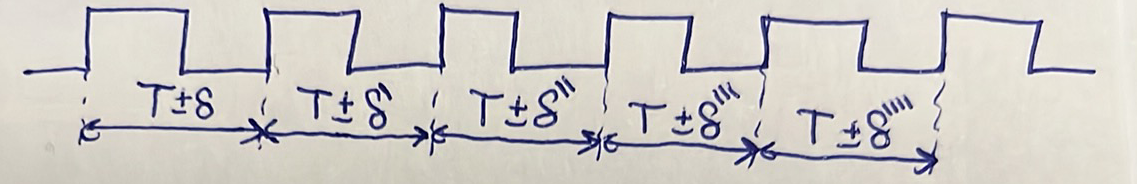 T±δ T±δ' T±δ'' T±δ''' T±δ''''